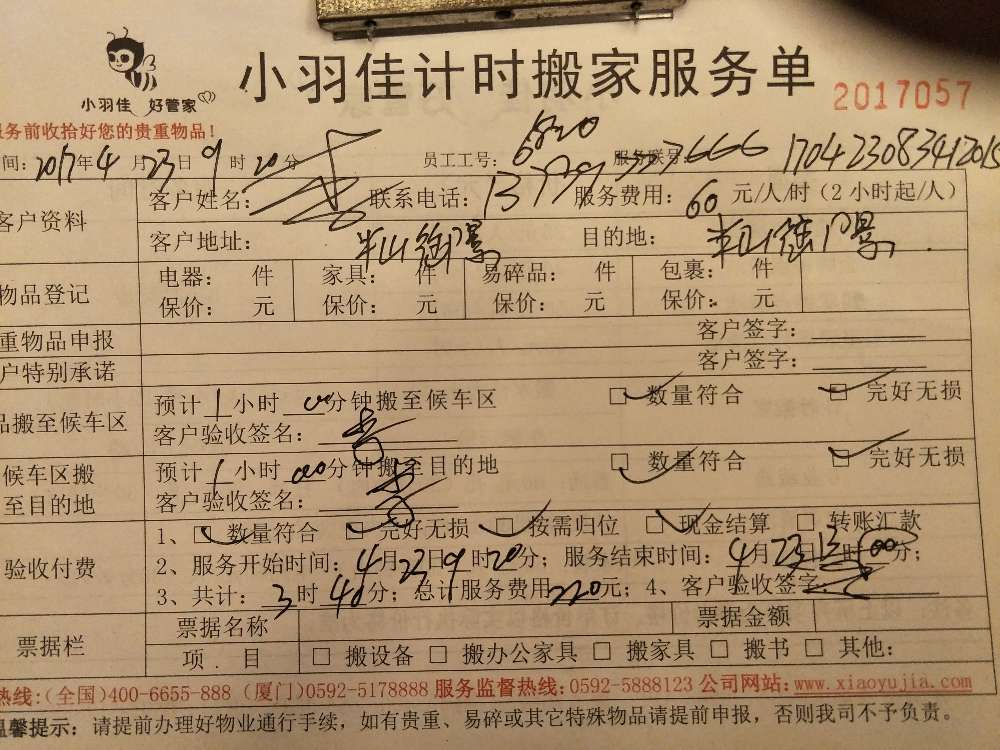 小羽佳 好管家
小羽佳计时搬家服务单
2017057
服务前收拾好您的贵重物品!
间: 2017年4月23日9时20分 员工工号: 6820 服务联号: 170423083412015
客户资料 客户姓名: 联系电话: 服务费用: 60 元/人/时(2小时起/人)
客户地址: 半山御景 目的地: 半山御景
物品登记 电器: 件 家具: 件 易碎品: 件 包裹: 件
保价: 元 保价: 元 保价: 元 保价: 元
重物品申报 客户签字:
户特别承诺 客户签字:
品搬至候车区 预计1小时00分钟搬至候车区 □数量符合 □完好无损
客户验收签名:
候车区搬至目的地 预计1小时00分钟搬至目的地 □数量符合 □完好无损
客户验收签名:
验收付费 1、□数量符合 □完好无损 □按需归位 □现金结算 □转账汇款
2、服务开始时间: 4月23日9时20分; 服务结束时间: 4月23日13时00分;
3、共计: 3时40分; 总计服务费用220元; 4、客户验收签字:
票据栏 票据名称 票据金额
项.目 □搬设备 □搬办公家具 □搬家具 □搬书 □其他:
热线:(全国)400-6655-888 (厦门)0592-5178888 服务监督热线:0592-5888123 公司网站:www.xiaoyujia.com
温馨提示: 请提前办理好物业通行手续，如有贵重、易碎或其它特殊物品请提前申报，否则我司不予负责。